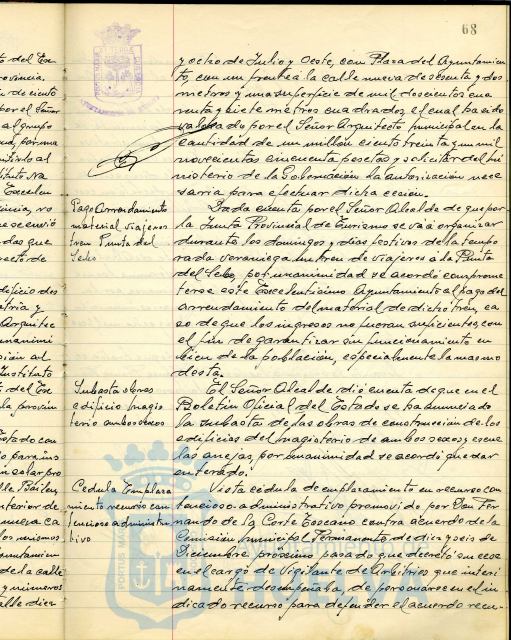 68
y ocho de Julio y Oeste, con Plaza del Ayuntamien
to, con un frente á la calle nueva de sesenta y dos
metros y una superficie de mil doscientos cua
renta y siete metros cuadrados, el cual ha sido
valorado por el Señor Arquitecto municipal en la
cantidad de un millón ciento treinta y un mil
novecientas cincuenta pesetas y solicitar del Mi
nisterio de la Gobernación la autorización nece
saria para efectuar dicha cesión.
Pago Arrendamiento
material viajeros
tren Punta del
Sebo
Dada cuenta por el Señor Alcalde de que por
la Junta Provincial de Turismo se va á organizar
durante los domingos y dias festivos de la tempo
rada veraniega un tren de viajeros á la Punta
del Sebo, por unanimidad se acordó comprome
terse este Excelentísimo Ayuntamiento al pago del
arrendamiento del material de dicho tren, ca
so de que los ingresos no fueran suficientes, con
el fin de garantizar su funcionamiento en
bien de la población, especialmente la mas mo
desta.
Subasta obras
edificio magis
terio ambos sexos
El Señor Alcalde dió cuenta de que en el
Boletin Oficial del Estado se ha anunciado
la subasta de las obras de construcción de los
edificios del magisterio de ambos sexos y escue
las anejas, por unanimidad se acordó quedar
enterado.
Cedula Emplaza
miento recurso con
tencioso administra
tivo
Vista cédula de emplazamiento en recurso con
tencioso-administrativo, promovido por Don Fer
nando de la Corte Toscano contra acuerdo de la
Comisión Municipal Permanente de diez y seis de
Diciembre próximo pasado que decretó su cese
en el cargo de Vigilante de Arbitrios que interi
namente desempeñaba, de personarse en el in
dicado recurso para defender el acuerdo recu-